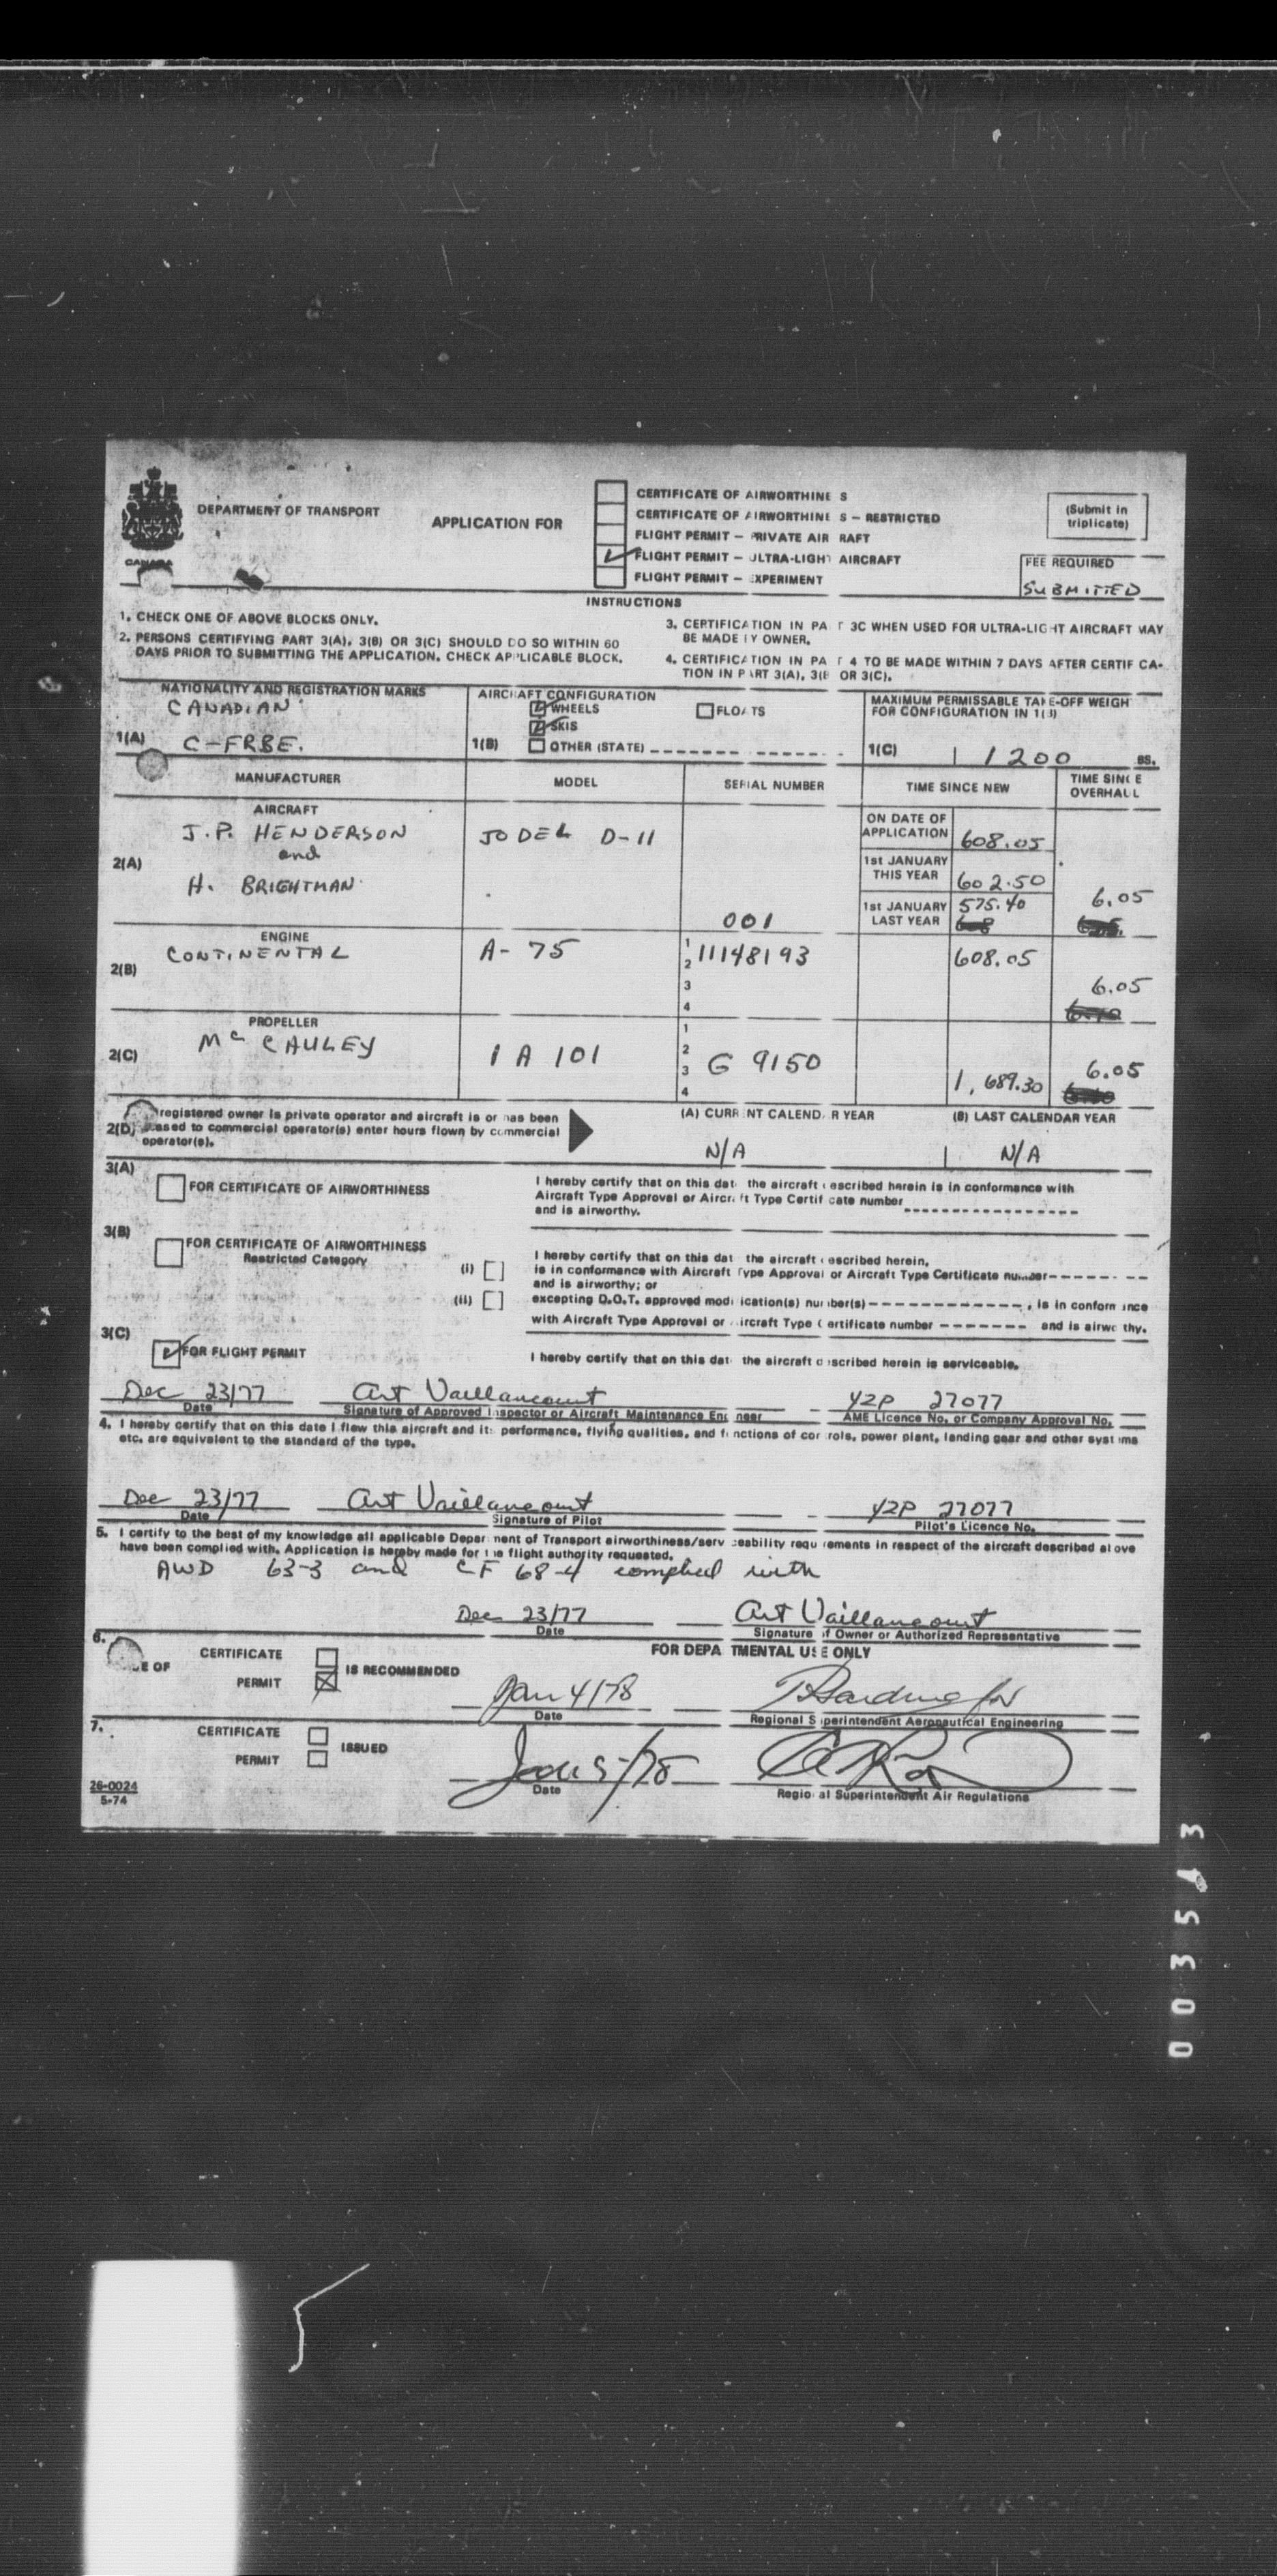 DEPARTMENT OF TRANSPORT
CANADA
APPLICATION FOR
CERTIFICATE OF AIRWORTHINE S
CERTIFICATE OF AIRWORTHINE S – RESTRICTED
FLIGHT PERMIT – PRIVATE AIR RAFT
FLIGHT PERMIT – ULTRA-LIGHT AIRCRAFT
FLIGHT PERMIT – EXPERIMENT
(Submit in triplicate)
FEE REQUIRED
SUBMITTED
INSTRUCTIONS
1. CHECK ONE OF ABOVE BLOCKS ONLY.
2. PERSONS CERTIFYING PART 3(A), 3(B) OR 3(C) SHOULD DO SO WITHIN 60
DAYS PRIOR TO SUBMITTING THE APPLICATION. CHECK APPLICABLE BLOCK.
3. CERTIFICATION IN PA T 3C WHEN USED FOR ULTRA-LIGHT AIRCRAFT MAY
BE MADE BY OWNER.
4. CERTIFICATION IN PA T 4 TO BE MADE WITHIN 7 DAYS AFTER CERTIF CA-
TION IN PART 3(A), 3(B OR 3(C).
NATIONALITY AND REGISTRATION MARKS
CANADIAN
1(A) C-FRBE.
AIRCRAFT CONFIGURATION
WHEELS
FLOATS
SKIS
1(B) OTHER (STATE)
MAXIMUM PERMISSABLE TAKE-OFF WEIGH
FOR CONFIGURATION IN 1(B)
1(C) 1200 BS.
MANUFACTURER MODEL SERIAL NUMBER TIME SINCE NEW TIME SINCE OVERHAUL
AIRCRAFT
2(A)
J.P. HENDERSON
and
H. BRIGHTMAN
JODEL D-11
001
ON DATE OF APPLICATION 608.05
1st JANUARY THIS YEAR 602.50
1st JANUARY LAST YEAR 575.40
6.05
ENGINE
2(B) CONTINENTAL A-75
1 11148193
2
3
4
608.05
6.05
PROPELLER
2(C) Mc CAULEY 1 A 101
1
2
3 G 9150
4
1,689.30
6.05
2(D) registered owner is private operator and aircraft is or has been
leased to commercial operator(s) enter hours flown by commercial
operator(s).
(A) CURRENT CALENDAR YEAR (B) LAST CALENDAR YEAR
N/A N/A
3(A)
FOR CERTIFICATE OF AIRWORTHINESS
I hereby certify that on this dat the aircraft described herein is in conformance with
Aircraft Type Approval or Aircraft Type Certificate number
and is airworthy.
3(B)
FOR CERTIFICATE OF AIRWORTHINESS
Restricted Category
I hereby certify that on this dat the aircraft described herein,
(i) is in conformance with Aircraft Type Approval or Aircraft Type Certificate number
and is airworthy; or
(ii) excepting D.O.T. approved modification(s) number(s) , is in conform ance
with Aircraft Type Approval or Aircraft Type Certificate number and is airworthy.
3(C)
FOR FLIGHT PERMIT
I hereby certify that on this dat the aircraft described herein is serviceable.
Dec 23/77 Art Vaillancourt YZP 27077
Date Signature of Approved Inspector or Aircraft Maintenance Engineer AME Licence No. or Company Approval No.
4. I hereby certify that on this date I flew this aircraft and its performance, flying qualities, and functions of controls, power plant, landing gear and other systems
etc. are equivalent to the standard of the type.
Dec 23/77 Art Vaillancourt YZP 27077
Date Signature of Pilot Pilot's Licence No.
5. I certify to the best of my knowledge all applicable Department of Transport airworthiness/serviceability requirements in respect of the aircraft described above
have been complied with. Application is hereby made for the flight authority requested.
AWD 63-3 and CF 68-4 complied with
Dec 23/77 Art Vaillancourt
Date Signature of Owner or Authorized Representative
6. FOR DEPA TMENTAL USE ONLY
E OF
CERTIFICATE
PERMIT
IS RECOMMENDED
Jan 4/78
Date Regional Superintendent Aeronautical Engineering
7.
CERTIFICATE
PERMIT
ISSUED
Jan 5/78
Date Regional Superintendent Air Regulations
26-0024
5-74
003543